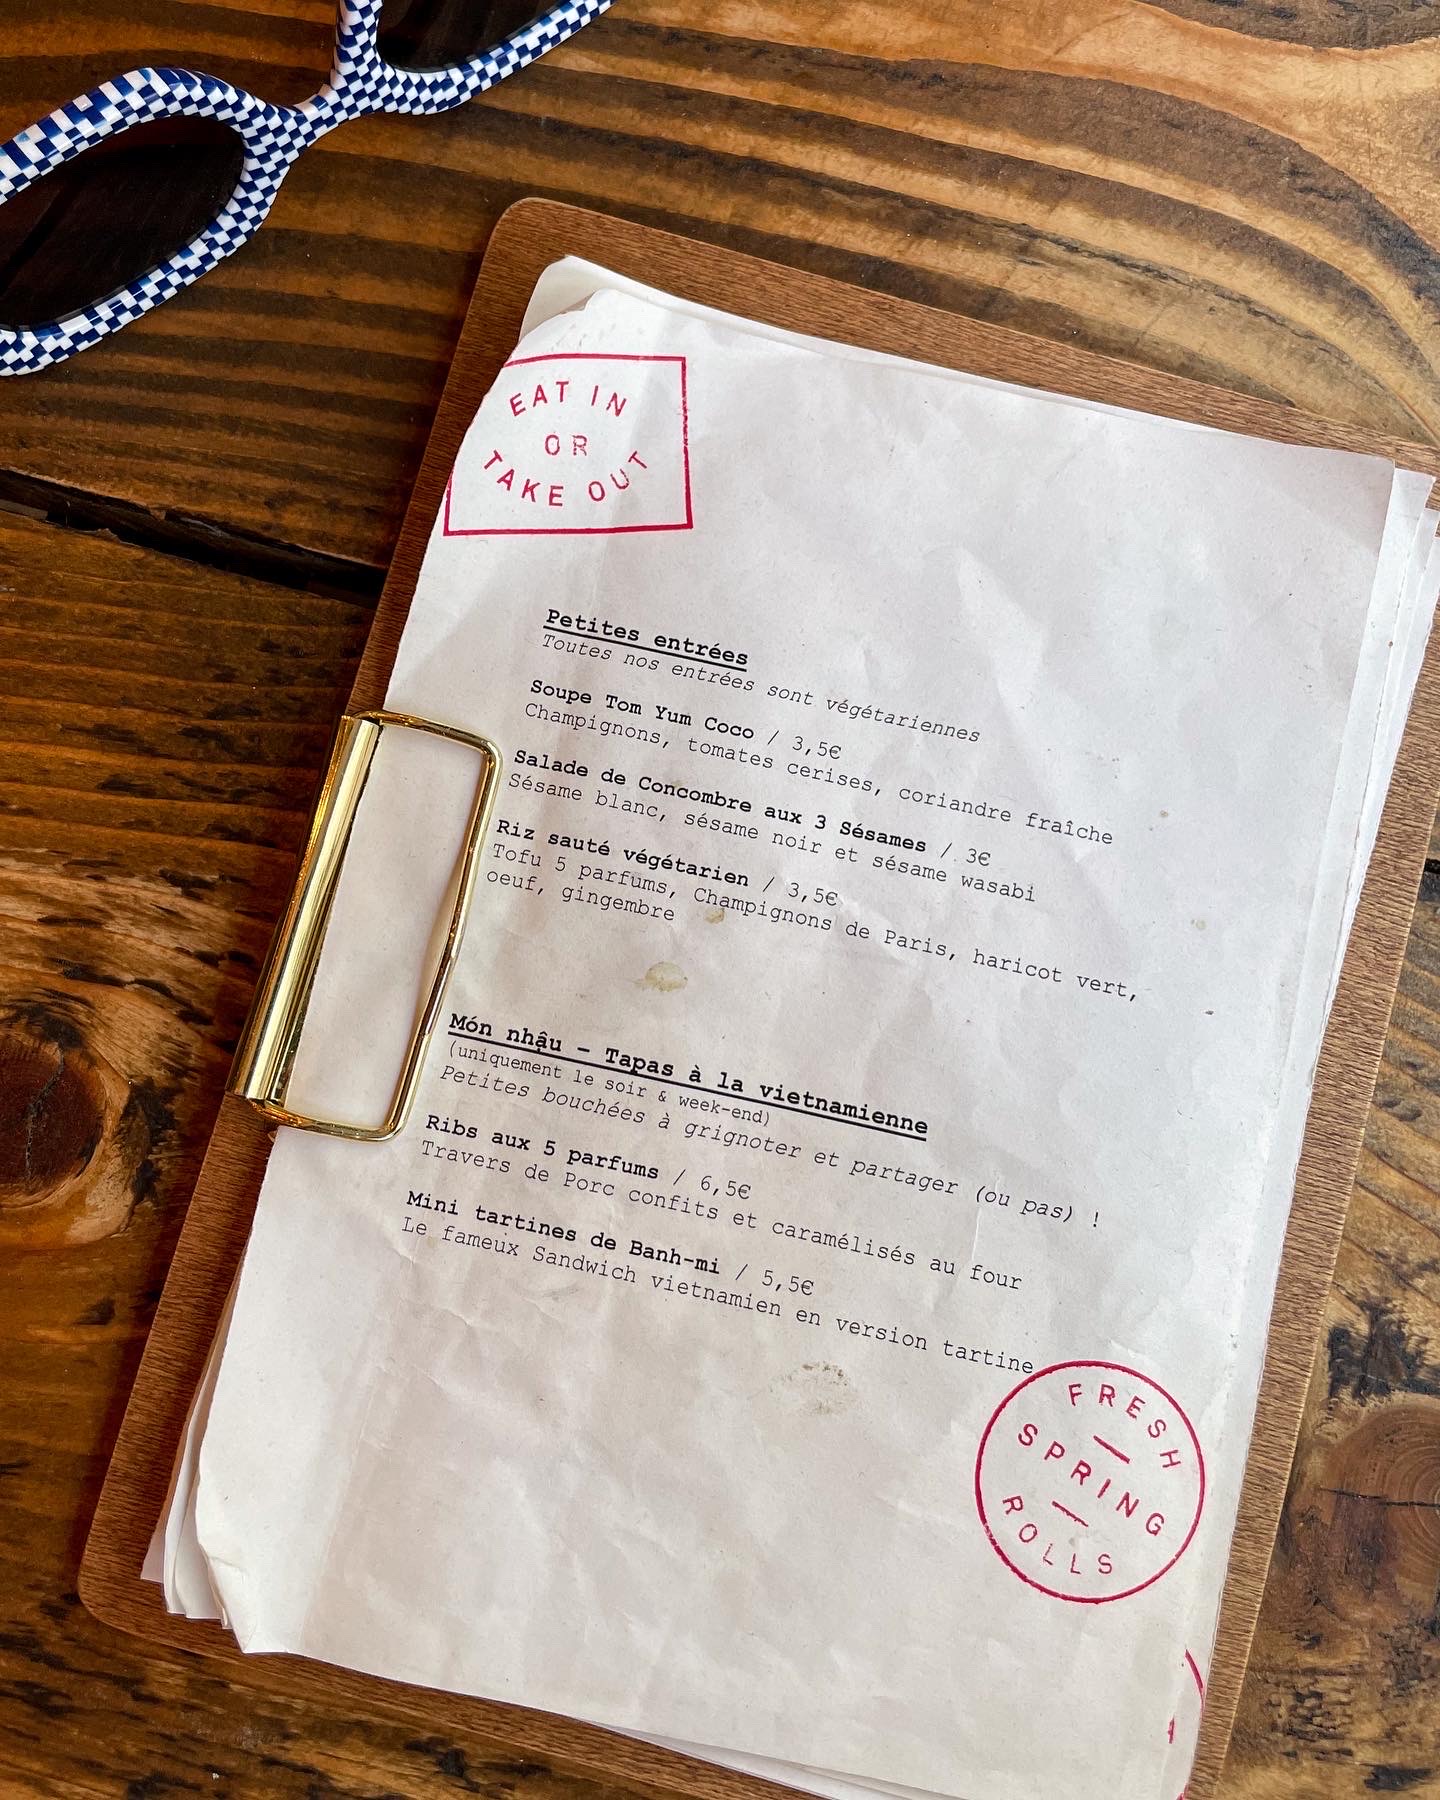 EAT IN
OR
TAKE OUT
Petites entrées
Toutes nos entrées sont végétariennes
Soupe Tom Yum Coco / 3,5€
Champignons, tomates cerises, coriandre fraîche
Salade de Concombre aux 3 Sésames / 3€
Sésame blanc, sésame noir et sésame wasabi
Riz sauté végétarien / 3,5€
Tofu 5 parfums, Champignons de Paris, haricot vert,
oeuf, gingembre
Món nhậu – Tapas à la vietnamienne
(uniquement le soir & week-end)
Petites bouchées à grignoter et partager (ou pas) !
Ribs aux 5 parfums / 6,5€
Travers de Porc confits et caramélisés au four
Mini tartines de Banh-mi / 5,5€
Le fameux Sandwich vietnamien en version tartine
FRESH
SPRING
ROLLS